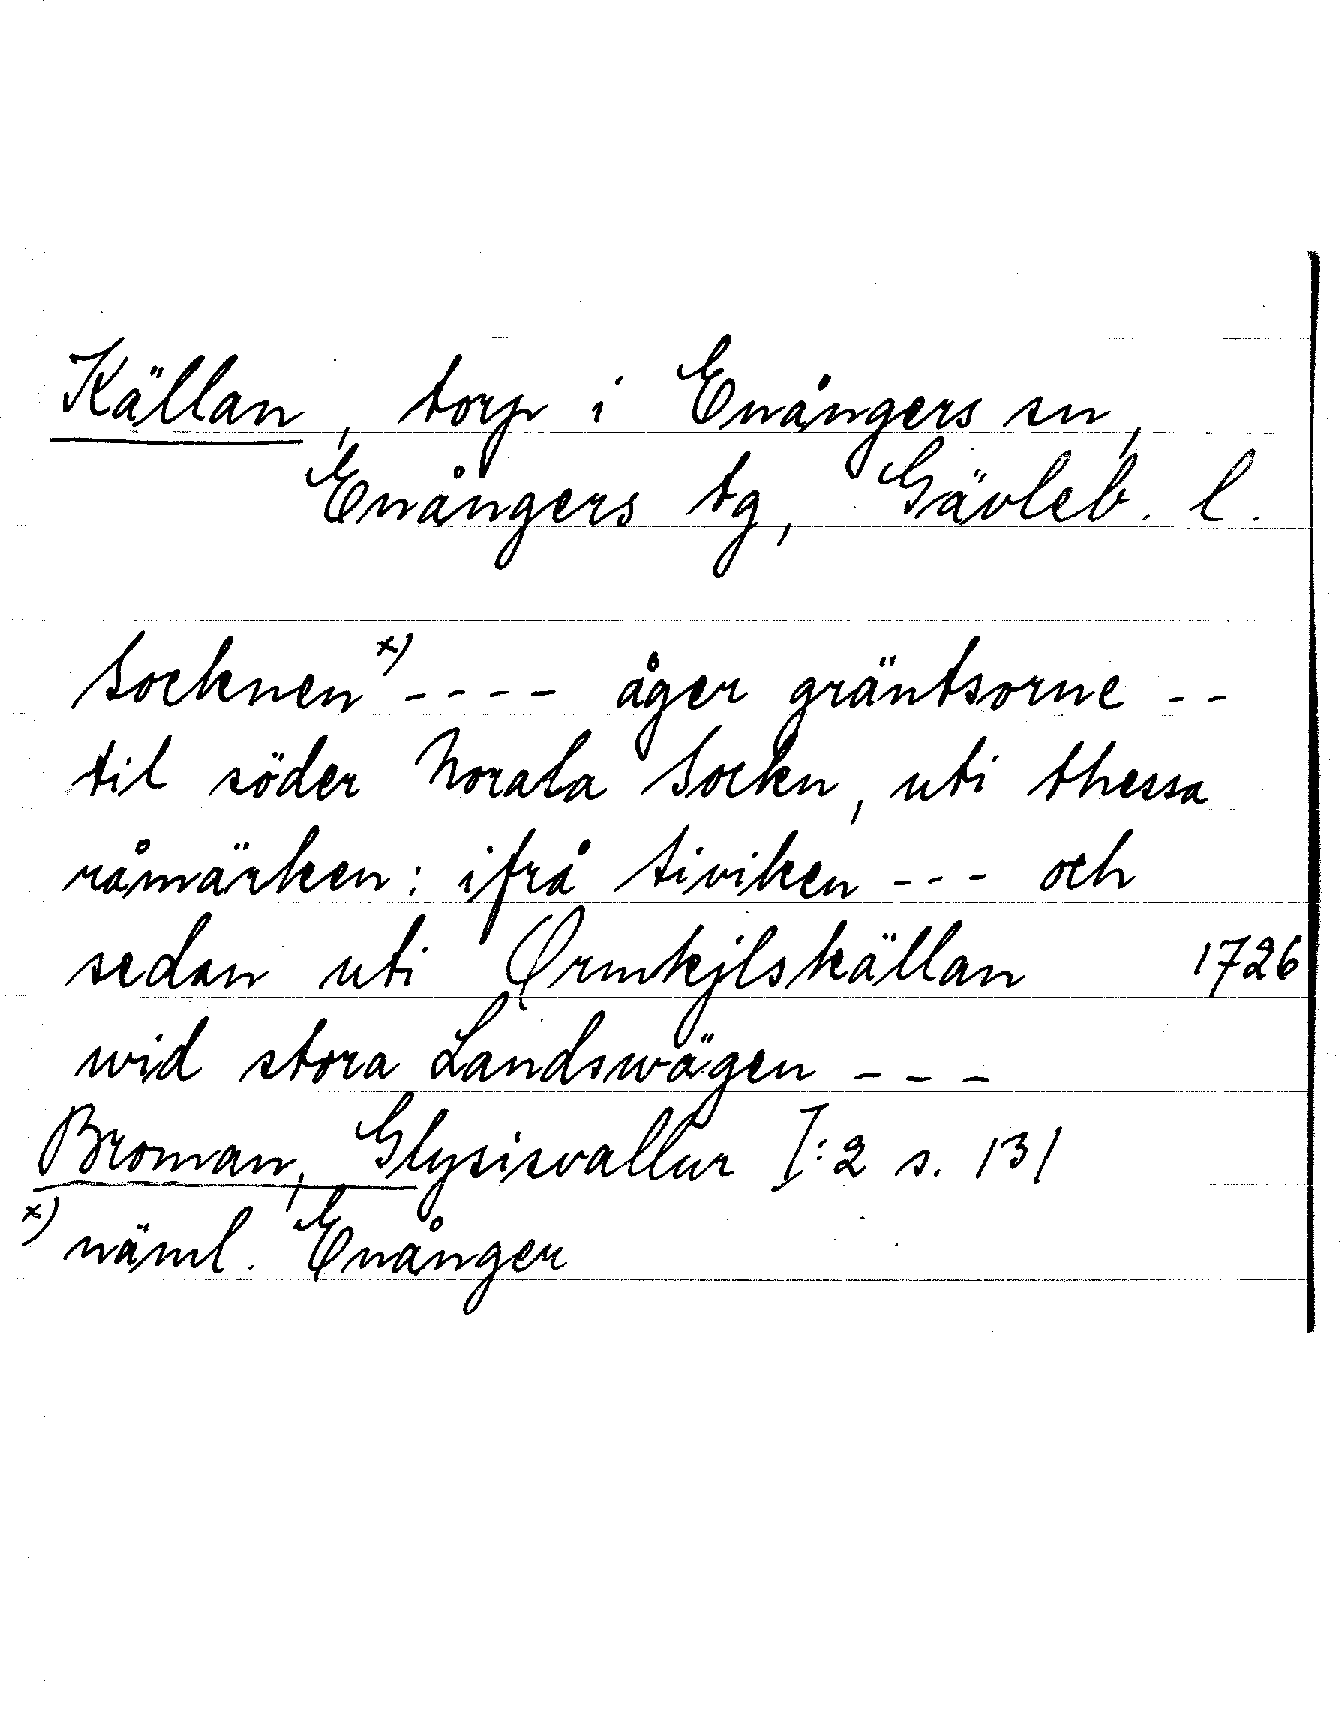 Källan, torp i Enångers sn,
Enångers tg, Gävleb. l.
Socknen x) ---- åger gräntsorne --
til söder Norala Sockn, uti thessa
råmärken: ifrå tiviken --- och
sedan uti Ormkjlskällan 1726
wid stora Landswägen ---
Broman, Glysisvallur I:2 s. 131
x) näml. Enånger